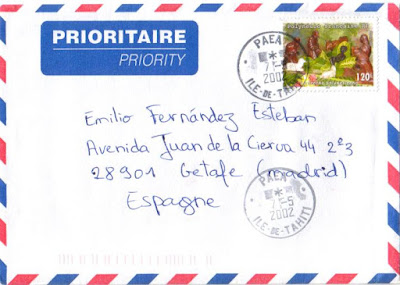 PRIORITAIRE
PRIORITY
PAEA
7-5
2002
ILE-DE-TAHITI
120F
Emilio Fernández Esteban
Avenida Juan de la Cierva 44 2º3
28901 Getafe (Madrid)
Espagne
PAEA
7-5
2002
ILE-DE-TAHITI